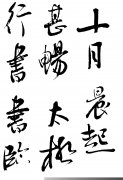 十月晨起
甚暢太極
行書書臨